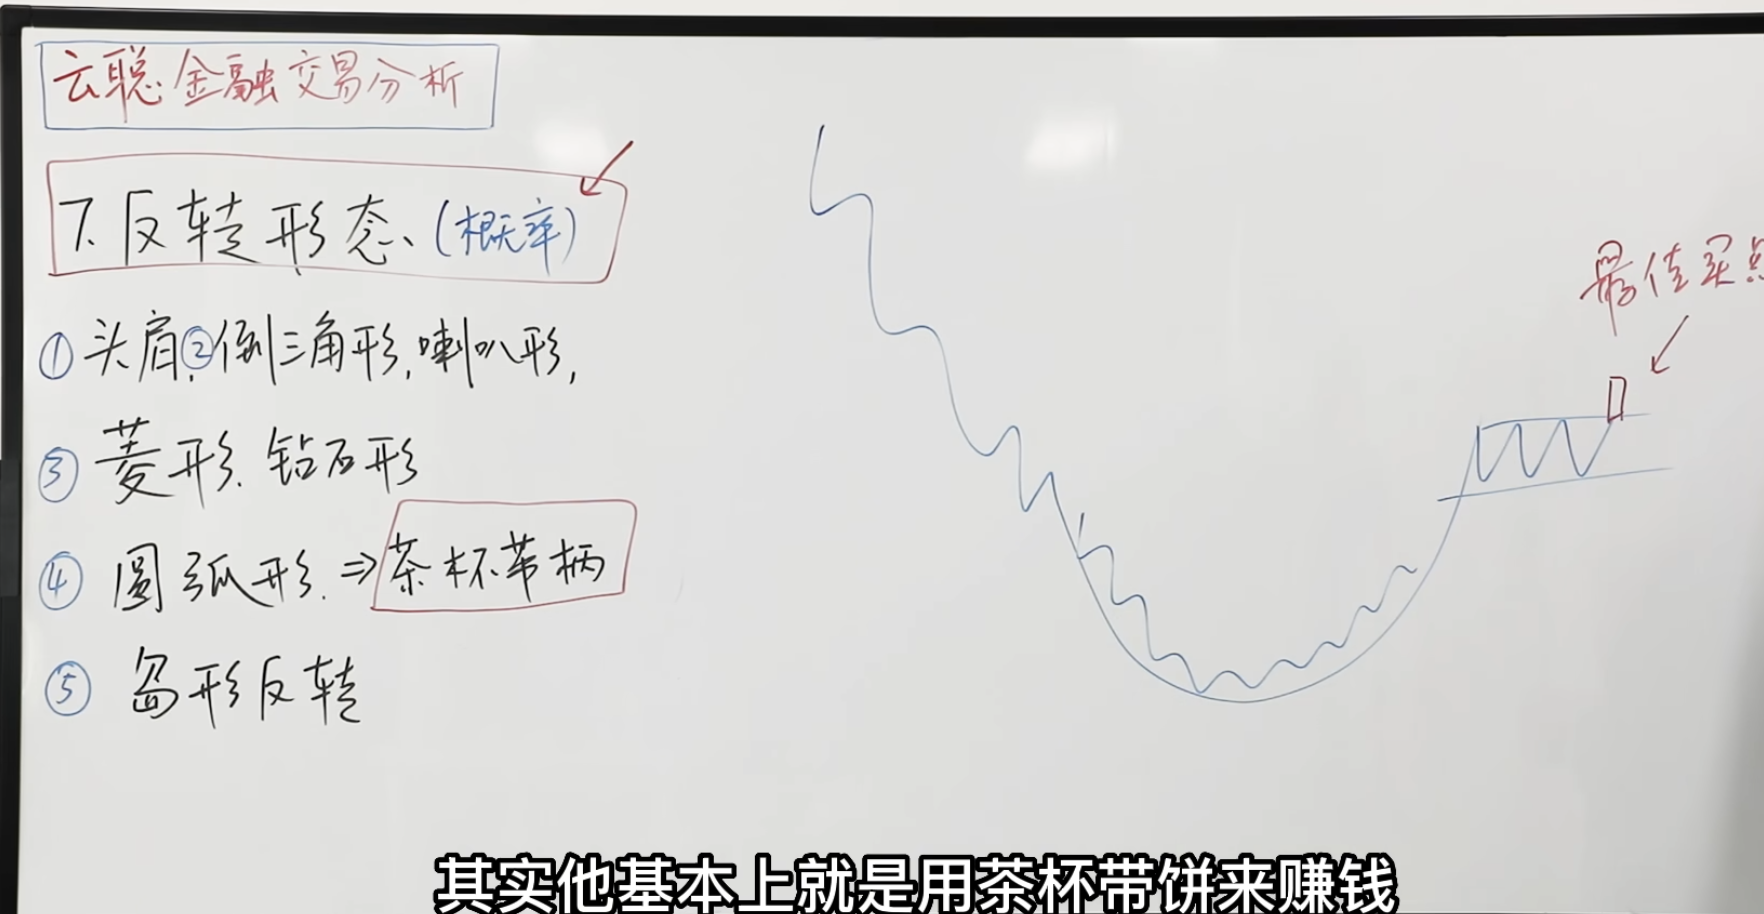 云聪金融交易分析
7.反转形态、(概率)
①头肩.②倒三角形,喇叭形,
③菱形.钻石形
④圆弧形.⇒茶杯带柄
⑤岛形反转
最佳买点
其实他基本上就是用茶杯带饼来赚钱